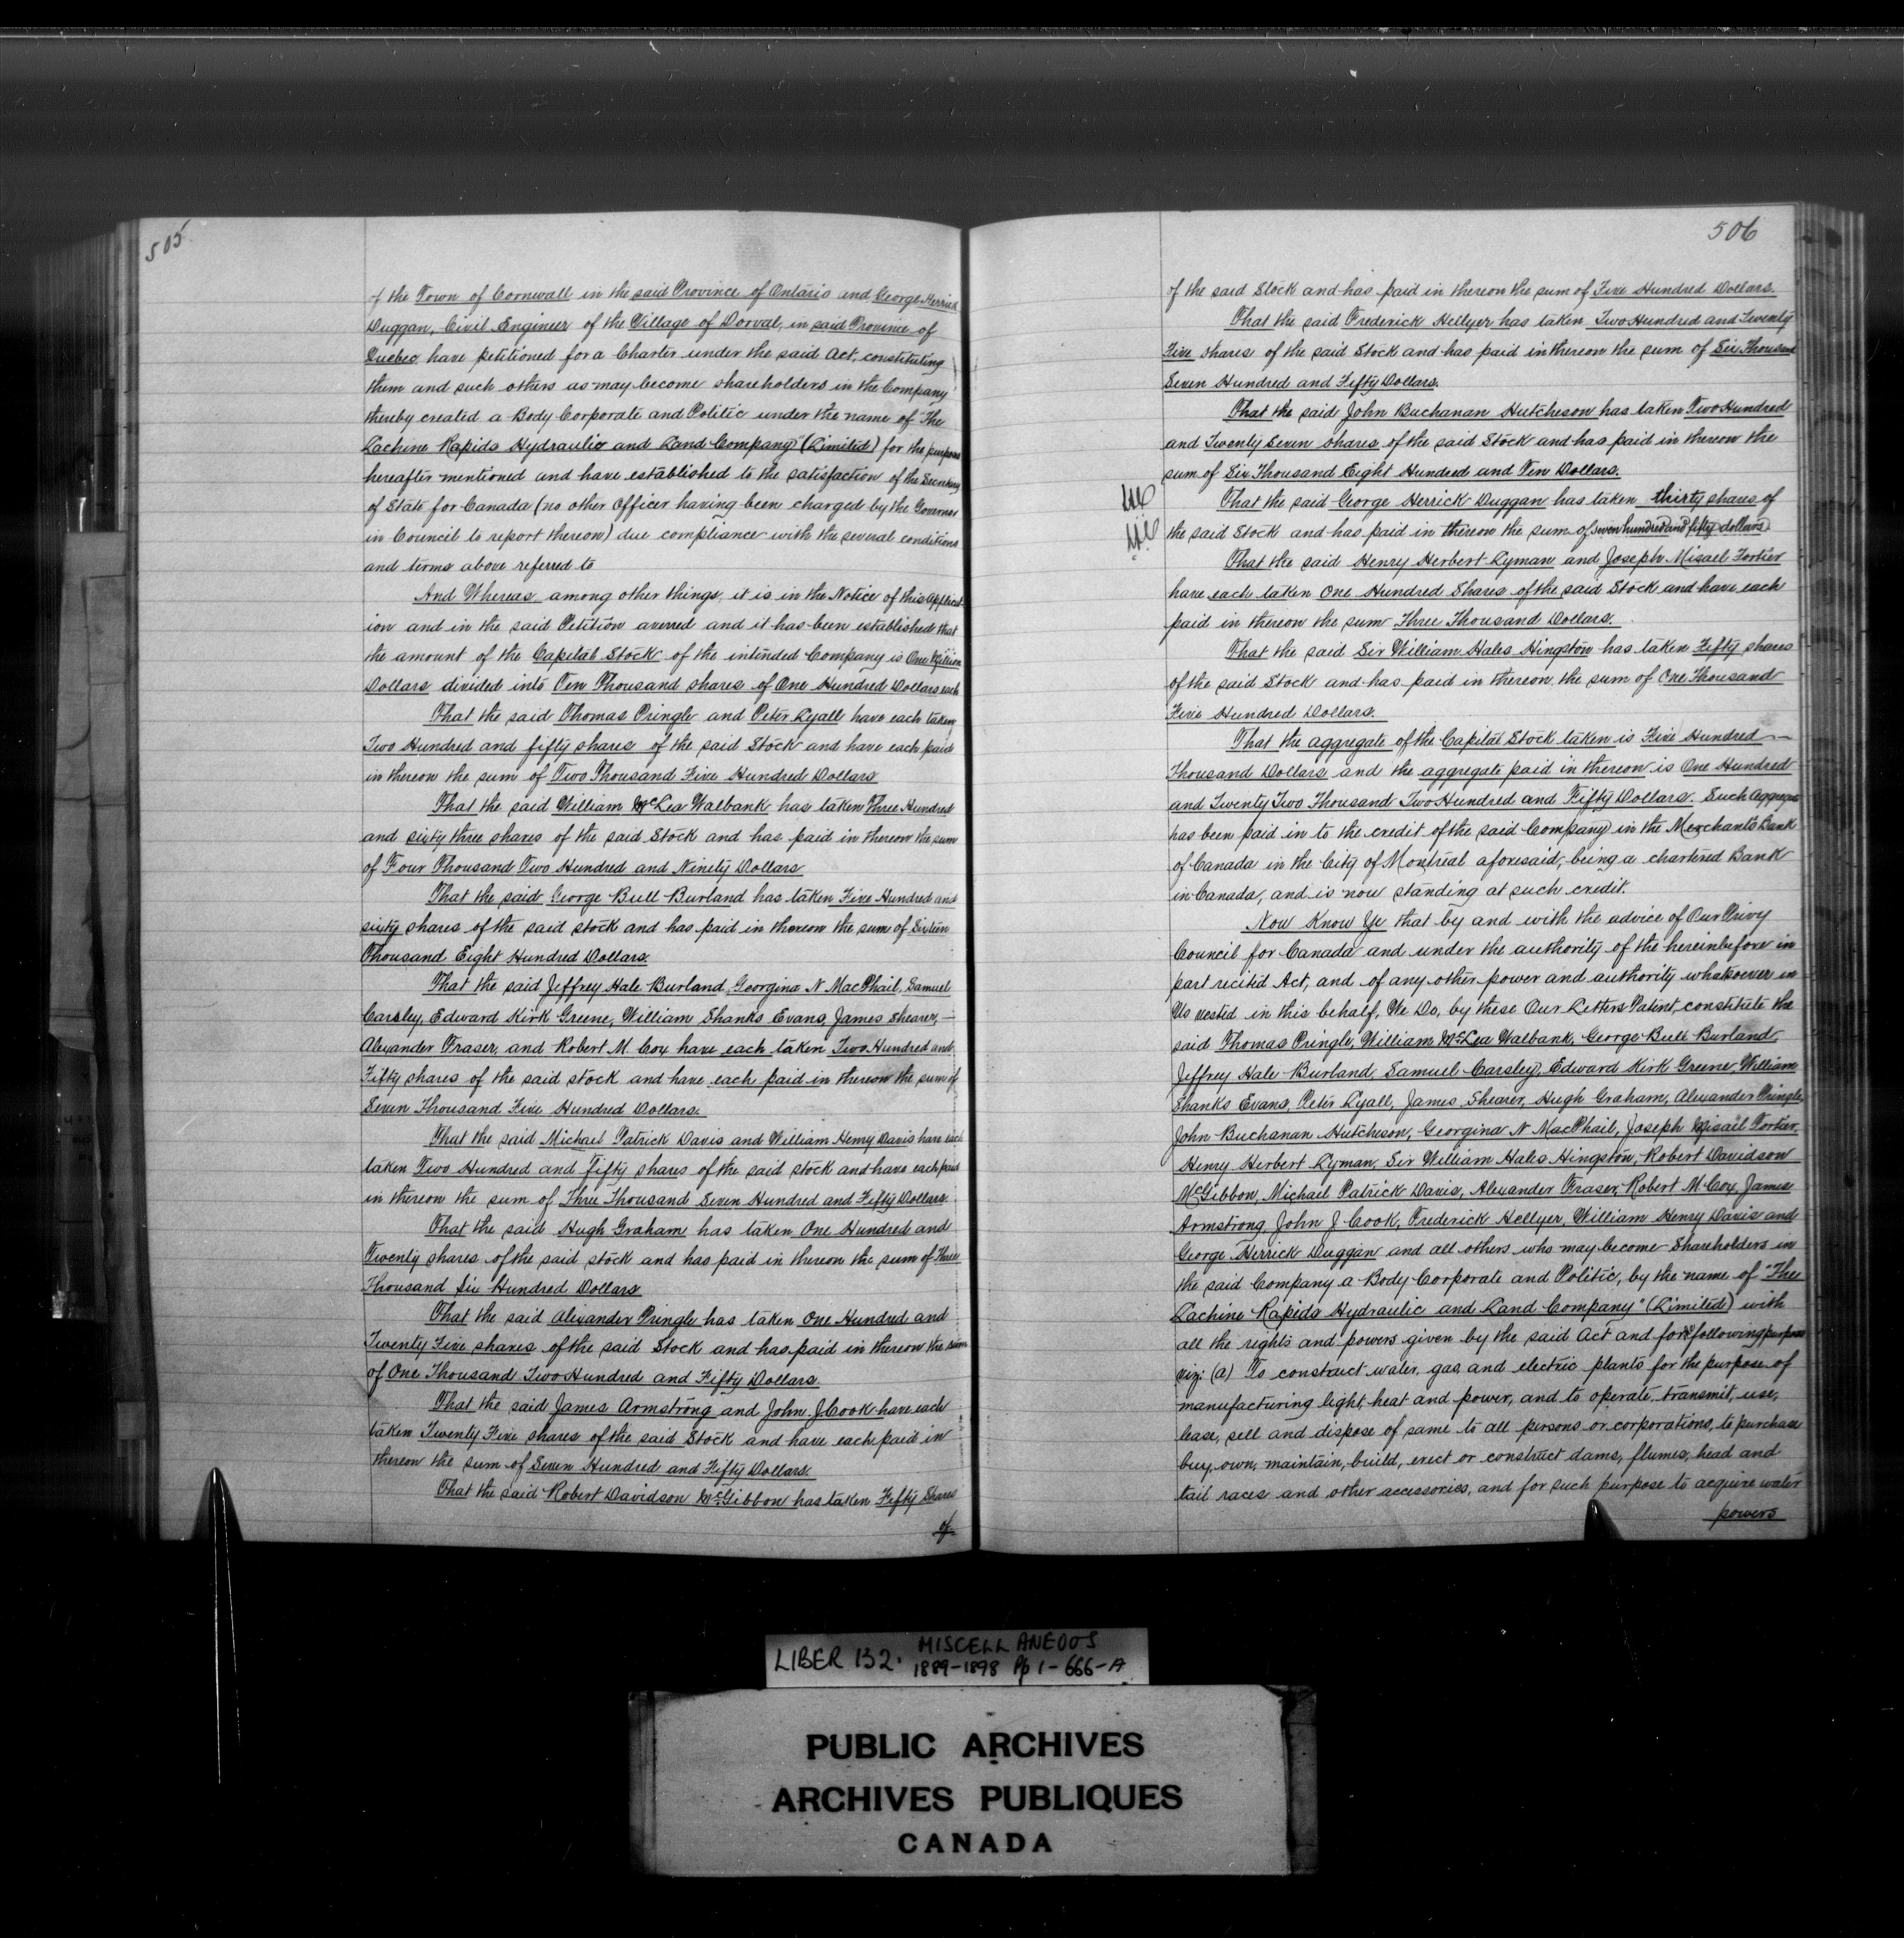 505
of the Town of Cornwall in the said Province of Ontario and George Herrick
Duggan, Civil Engineer of the Village of Dorval, in said Province of
Quebec have petitioned for a Charter under the said Act, constituting
them and such others as may become shareholders in the Company
thereby created a Body Corporate and Politic under the name of "The
Lachine Rapids Hydraulic and Land Company" (Limited) for the purpose
hereafter mentioned and have established to the satisfaction of the Secretary
of State for Canada (no other Officer having been charged by the Governor
in Council to report thereon) due compliance with the several conditions
and terms above referred to
And Whereas among other things, it is in the Notice of this Applicat-
ion and in the said Petition averred and it has been established that
the amount of the Capital Stock of the intended Company is One Million
Dollars divided into Ten Thousand shares of One Hundred Dollars each
That the said Thomas Pringle and Peter Lyall have each taken
Two Hundred and fifty shares of the said Stock and have each paid
in thereon the sum of Two Thousand Five Hundred Dollars
That the said William McLea Walbank has taken Three Hundred
and sixty three shares of the said Stock and has paid in thereon the sum
of Four Thousand Two Hundred and Ninety Dollars
That the said George Bull Burland has taken Five Hundred and
sixty shares of the said stock and has paid in thereon the sum of Sixteen
Thousand Eight Hundred Dollars.
That the said Jeffrey Hale Burland, Georgina N MacPhail, Samuel
Carsley, Edward Kirk Greene, William Shanks Evans, James Shearer,
Alexander Fraser, and Robert M. Cox have each taken Two Hundred and
Fifty shares of the said stock and have each paid in thereon the sum of
Seven Thousand Five Hundred Dollars.
That the said Michael Patrick Davis and William Henry Davis have each
taken Two Hundred and Fifty shares of the said stock and have each paid
in thereon the sum of Three Thousand Seven Hundred and Fifty Dollars
That the said Hugh Graham has taken One Hundred and
Twenty shares of the said stock and has paid in thereon the sum of Three
Thousand Six Hundred Dollars
That the said Alexander Pringle has taken One Hundred and
Twenty Five shares of the said Stock and has paid in thereon the sum
of One Thousand Two Hundred and Fifty Dollars.
That the said James Armstrong and John J. Cook have each
taken Twenty Five shares of the said Stock and have each paid in
thereon the sum of Seven Hundred and Fifty Dollars.
That the said Robert Davidson McGibbon has taken Fifty Shares
of
506
of the said Stock and has paid in thereon the sum of Five Hundred Dollars.
That the said Frederick Hellyer has taken Two Hundred and Twenty
Five shares of the said Stock and has paid in thereon the sum of Six Thousand
Seven Hundred and Fifty Dollars.
That the said John Buchanan Hutcheson has taken Two Hundred
and Twenty Seven shares of the said Stock and has paid in thereon the
sum of Six Thousand Eight Hundred and Ten Dollars.
That the said George Herrick Duggan has taken thirty shares of
the said Stock and has paid in thereon the sum of seven hundred and fifty dollars
That the said Henry Herbert Lyman and Joseph Misael Fortier
have each taken One Hundred Shares of the said Stock and have each
paid in thereon the sum Three Thousand Dollars.
That the said Sir William Hales Hingston has taken Fifty shares
of the said Stock and has paid in thereon the sum of One Thousand
Five Hundred Dollars.
That the aggregate of the Capital Stock taken is Five Hundred
Thousand Dollars and the aggregate paid in thereon is One Hundred
and Twenty Two Thousand Two Hundred and Fifty Dollars. Such Aggregate
has been paid in to the credit of the said Company in the Merchants Bank
of Canada in the City of Montreal aforesaid, being a chartered Bank
in Canada, and is now standing at such credit.
Now Know Ye that by and with the advice of Our Privy
Council for Canada and under the authority of the hereinbefore in
part recited Act, and of any other power and authority whatsoever in
Us vested in this behalf, We Do, by these Our Letters Patent, constitute the
said Thomas Pringle, William McLea Walbank, George Bull Burland,
Jeffrey Hale Burland, Samuel Carsley, Edward Kirk Greene, William
Shanks Evans, Peter Lyall, James Shearer, Hugh Graham, Alexander Pringle,
John Buchanan Hutcheson, Georgina N MacPhail, Joseph Misaël Fortier,
Henry Herbert Lyman, Sir William Hales Hingston, Robert Davidson
McGibbon, Michael Patrick Davis, Alexander Fraser, Robert M. Cox, James
Armstrong, John J Cook, Frederick Hellyer, William Henry Davis and
George Herrick Duggan and all others who may become Shareholders in
the said Company a Body Corporate and Politic, by the name of "The
Lachine Rapids Hydraulic and Land Company" (Limited) with
all the rights and powers given by the said Act and for the following purpose
viz: (a) To construct water, gas, and electric plants for the purpose of
manufacturing light, heat and power, and to operate, transmit, use,
lease, sell and dispose of same to all persons or corporations, to purchase
buy, own, maintain, build, erect or construct dams, flumes, head and
tail races and other accessories, and for such purpose to acquire water
powers
LIBER 132. MISCELLANEOUS
1889-1898 Pp 1-666-A
PUBLIC ARCHIVES
ARCHIVES PUBLIQUES
CANADA